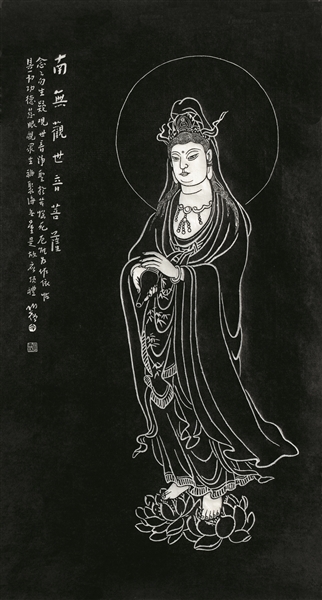 南無觀世音菩薩
念念勿生疑觀世音淨聖於苦惱死厄能為作依怙
具一切功德慈眼視眾生福聚海無量是故應頂禮